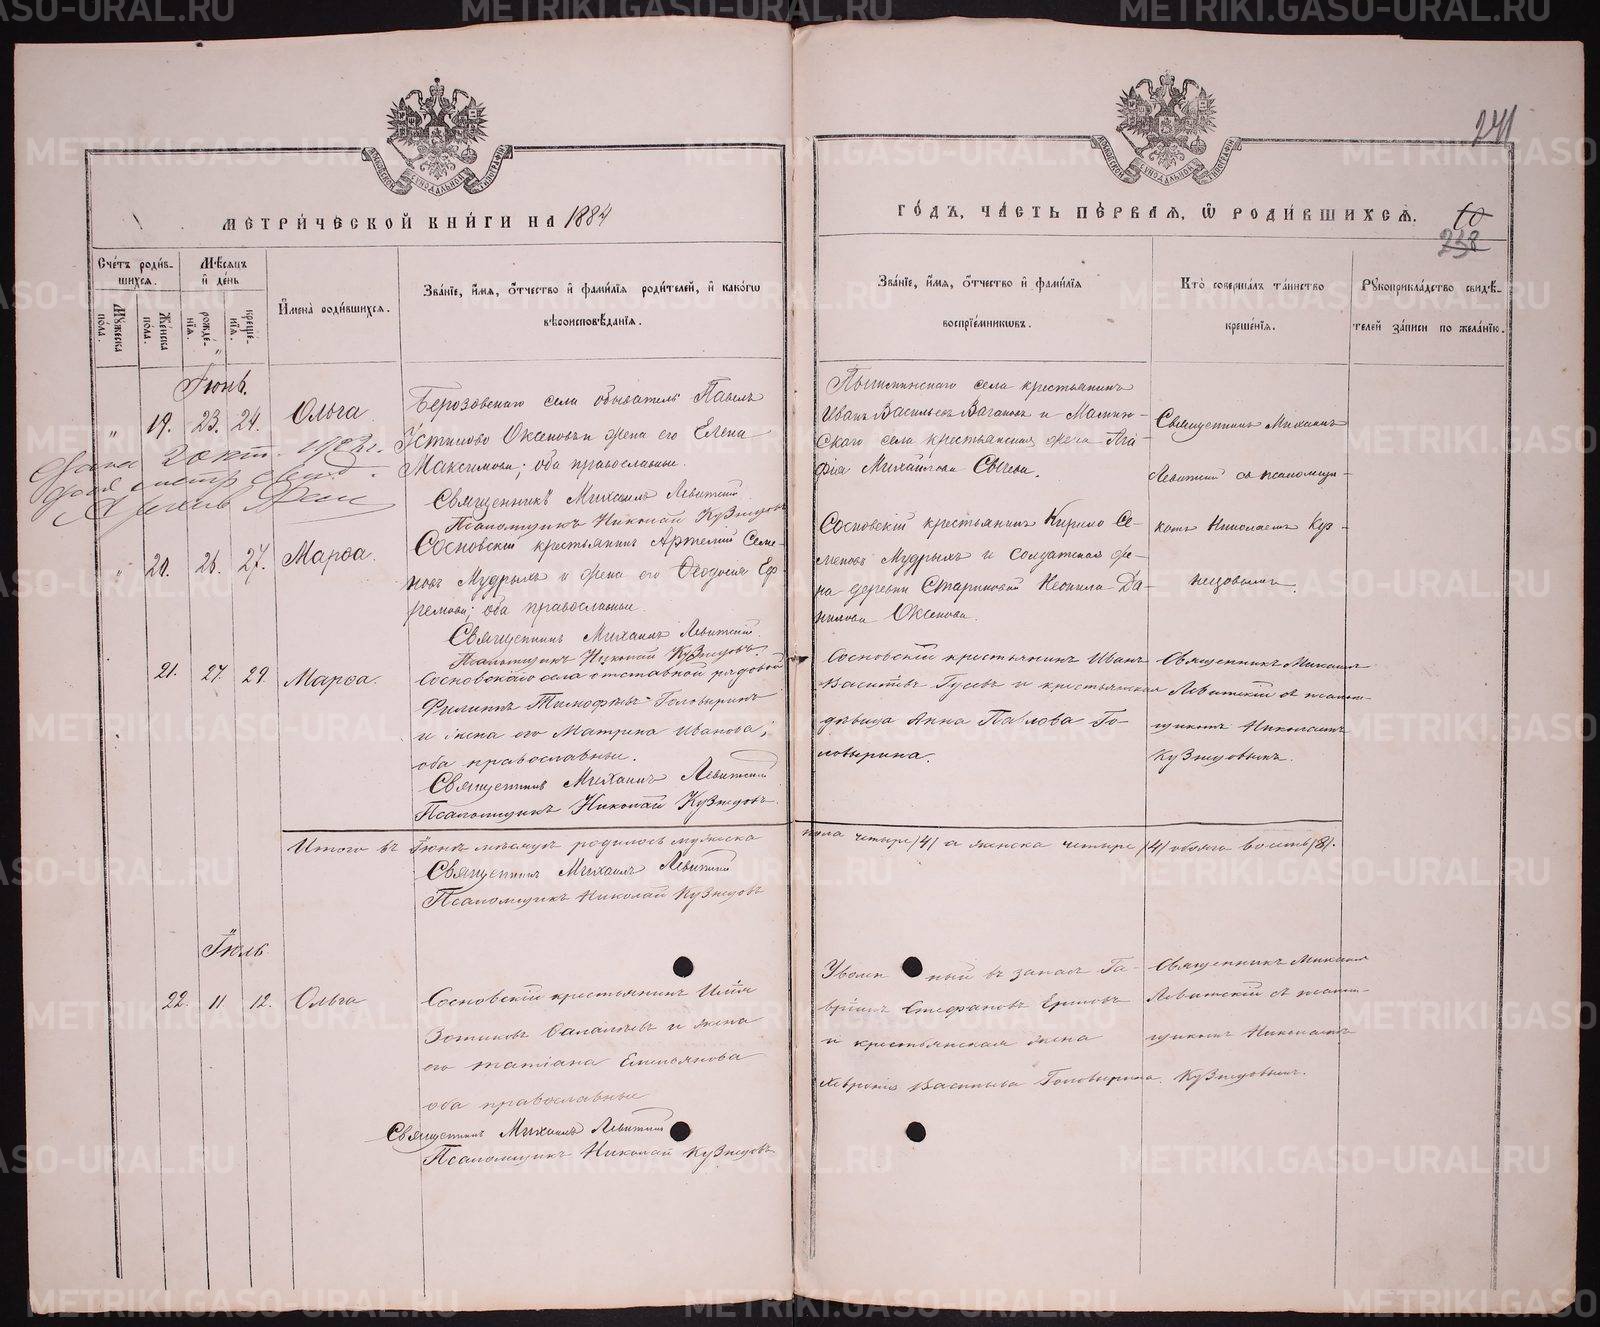 METRIKI.GASO-URAL.RU
МЕТРИЧЕСКОЙ КНИГИ НА 1884
ГОДЪ, ЧАСТЬ ПЕРВАЯ, Ѿ РОДИВШИХСЯ.
241
10
238
Счетъ родив-
шихся.
Мѣсяцъ
и день
Мужеска пола.
Женска пола.
рожде-
нія.
креще-
нія.
Имена родившихся.
Званіе, имя, отчество и фамилія родителей, и какогѡ
вѣроисповѣданія.
Званіе, имя, отчество и фамилія
воспріемниковъ.
Кто совершалъ таинство
крещенія.
Рукоприкладство свидѣ-
телей записи по желанію.
Іюнь.
19. 23. 24. Ольга
Берозовскаго села обыватель Павелъ
Устиновъ Оксеновъ и жена его Елена
Максимова; оба православные.
Священникъ Михаилъ Левитскій
Псаломщикъ Николай Кузнецовъ
Пышминскаго села крестьянинъ
Иванъ Васильевъ Ваганов и
скаго села крестьянская жена Ага-
фія Михайлова
Священникъ Михаилъ
Левитскій съ псаломщи-
комъ Николаемъ Куз-
нецовымъ.
20. 26. 27. Марѳа.
Сосновскій крестьянинъ Артемій Семе-
новъ Мудрыхъ и жена его Ѳеодосія Еф-
ремова; оба православные.
Священникъ Михаилъ Левитскій.
Псаломщикъ Николай Кузнецовъ.
Сосновскій крестьянинъ Кирило Се-
меновъ Мудрыхъ и солдатская же-
на деревни Стариковой Неонила Да-
нилова Оксенова.
21. 27. 29. Марѳа.
Сосновскаго села отставной рядовой
Филиппъ Тимофѣевъ Головыринъ
и жена его Матрина Иванова;
оба православные.
Священникъ Михаилъ Левитскій
Псаломщикъ Николай Кузнецовъ
Сосновскій крестьянинъ Иванъ
Васильевъ Гусевъ и крестьянская
дѣвица Анна Павлова Го-
ловырина.
Священникъ Михаилъ
Левитскій съ псалом-
щикомъ Николаемъ
Кузнецовымъ.
Итого въ Іюнѣ мѣсяцѣ родилось мужеска пола четыре /4/ а женска четыре /4/ обоего восемь /8/.
Священникъ Михаилъ Левитскій
Псаломщикъ Николай Кузнецовъ
Іюль
22. 11. 12. Ольга
Сосновскій крестьянинъ Илья
Зотиковъ и жена
его Татіана Емельянова
оба православные
Священникъ Михаилъ Левитскій
Псаломщикъ Николай Кузнецовъ
Уволенный въ запасъ Га-
вріилъ Стефановъ Ершовъ
и крестьянская жена
Васильева Головырина.
Священникъ Михаилъ
Левитскій съ псалом-
щикомъ Николаемъ
Кузнецовымъ.